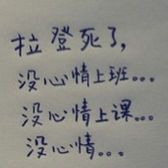 拉登死了，
没心情上班...
没心情上课...
没心情...